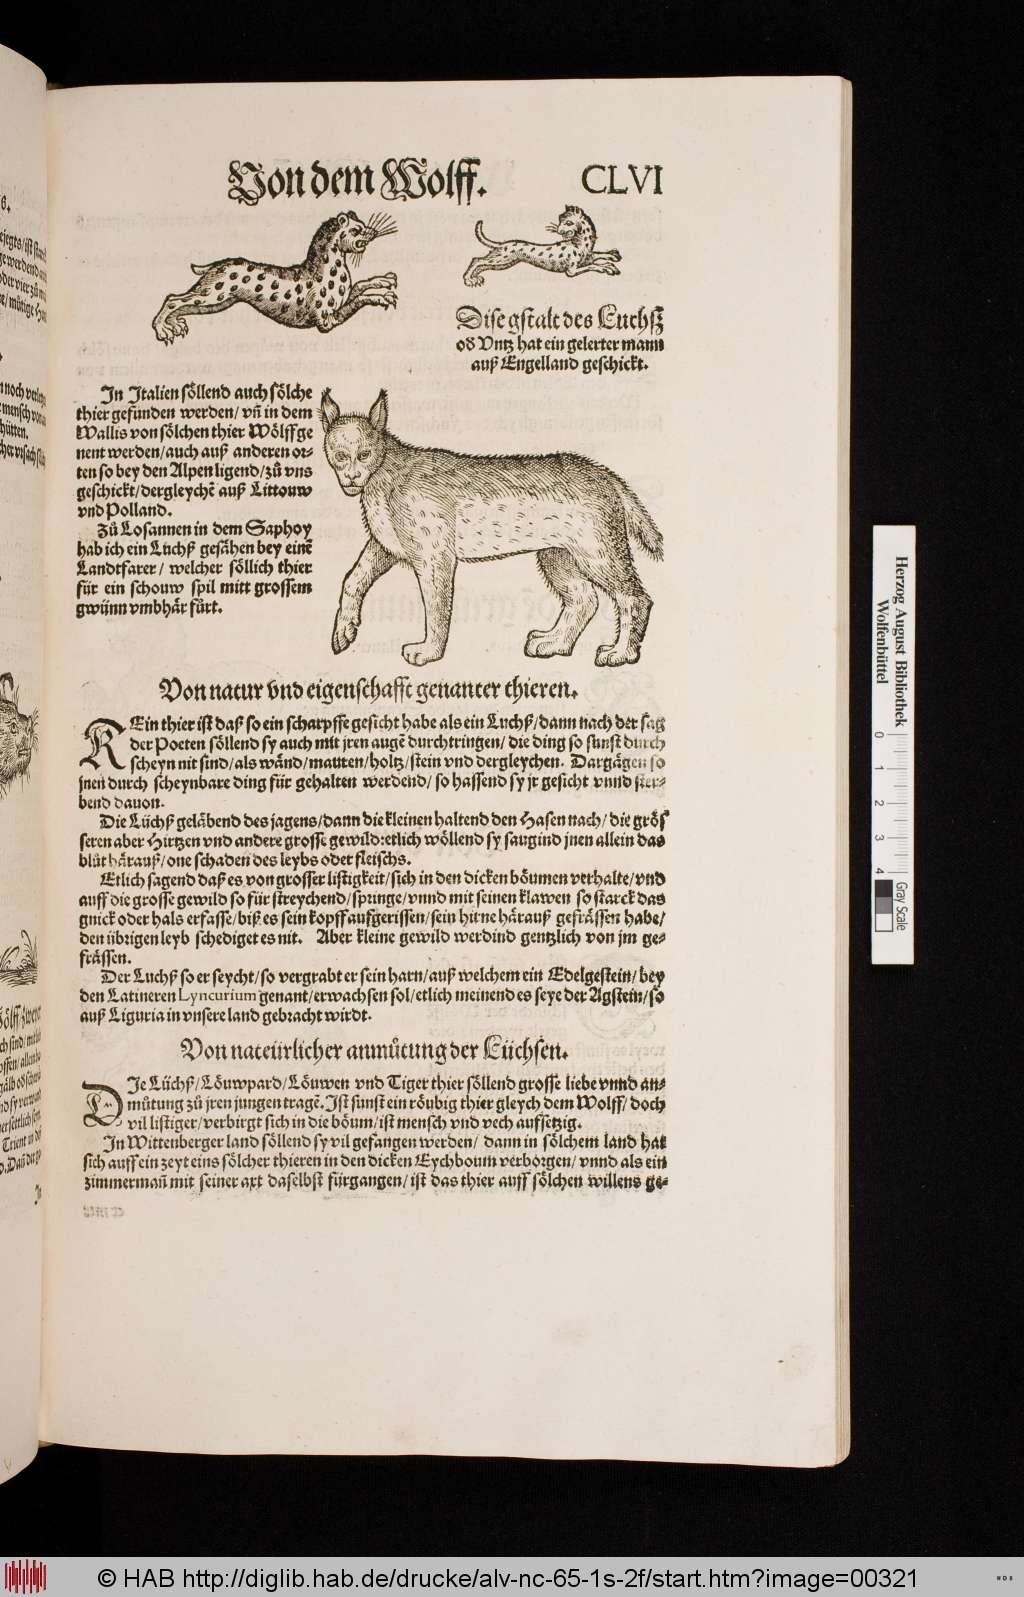 Von dem Wolff. CLVI
Dise gstalt des Luchß
od Vntz hat ein gelerter mann
auß Engelland geschickt.
In Italien söllend auch sölche
thier gefunden werden/ vñ in dem
Wallis von sölchen thier Wölff ge
nent werden/ auch auß anderen or-
ten so bey den Alpen ligend/ zů vns
geschickt/ dergleychẽ auß Littouw
vnd Polland.
Zů Losannen in dem Saphoy
hab ich ein Luchß gesåhen bey einẽ
Landtfarer/ welcher söllich thier
für ein schouw spil mitt grossem
gwünn vmbhår fürt.
Von natur vnd eigenschafft genanter thieren.
KEin thier ist daß so ein scharpffe gesicht habe als ein Luchß/ dann nach der sag
der Poeten söllend sy auch mit jren augẽ durchtringen/ die ding so sunst durch
scheyn nit sind/ als wånd/ mauren/ holtz/ stein vnd dergleychen. Dargågen so
jnen durch scheynbare ding für gehalten werdend/ so hassend sy jr gesicht vnnd ster-
bend dauon.
Die Lüchß gelåbend des jagens/ dann die kleinen haltend den Hasen nach/ die grös
seren aber Hirtzen vnd andere grosse gewild: etlich wöllend sy saugind jnen allein das
blůt hårauß/ one schaden des leybs oder fleischs.
Etlich sagend daß es von grosser listigkeit/ sich in den dicken böumen verhalte/ vnd
auff die grosse gewild so für streychend/ springe/ vnnd mit seinen klawen so starck das
gnick oder hals erfasse/ biß es sein kopff aufgerissen/ sein hirne hårauß gefråssen habe/
den übrigen leyb schediget es nit. Aber kleine gewild werdind gentzlich von jm ge-
fråssen.
Der Luchß so er seycht/ so vergrabt er sein harn/ auß welchem ein Edelgestein/ bey
den Latineren Lyncurium genant/ erwachsen sol/ etlich meinend es seye der Agstein/ so
auß Liguria in vnsere land gebracht wirdt.
Von nateürlicher anmůtung der Lüchsen.
DIe Lüchß/ Löuwpard/ Löuwen vnd Tiger thier söllend grosse liebe vnnd an-
můtung zů jren jungen tragẽ. Ist sunst ein röubig thier gleych dem Wolff/ doch
vil listiger/ verbirgt sich in die böum/ ist mensch vnd vech aufsetzig.
In Wittenberger land söllend sy vil gefangen werden/ dann in sölchem land hat
sich auff ein zeyt eins sölcher thieren in den dicken Eychboum verborgen/ vnnd als ein
zimmermañ mit seiner axt daselbst fürgangen/ ist das thier auff sölchen willens ge-
Herzog August Bibliothek
Wolfenbüttel
0 1 2 3 4
Gray Scale
© HAB http://diglib.hab.de/drucke/alv-nc-65-1s-2f/start.htm?image=00321